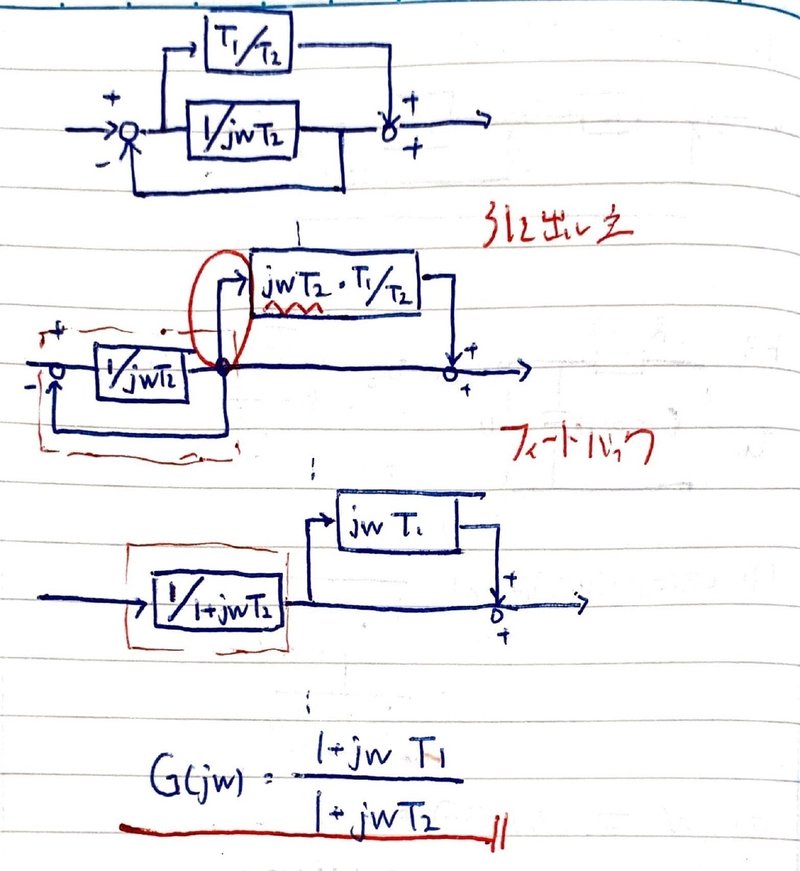 T₁/T₂
+
1/jωT₂
+
-
+
引き出し点
jωT₂・T₁/T₂
+
1/jωT₂
+
-
+
フィードバック
jω T₁
1/1+jωT₂
+
+
G(jω) = 1+jω T₁
1+jωT₂